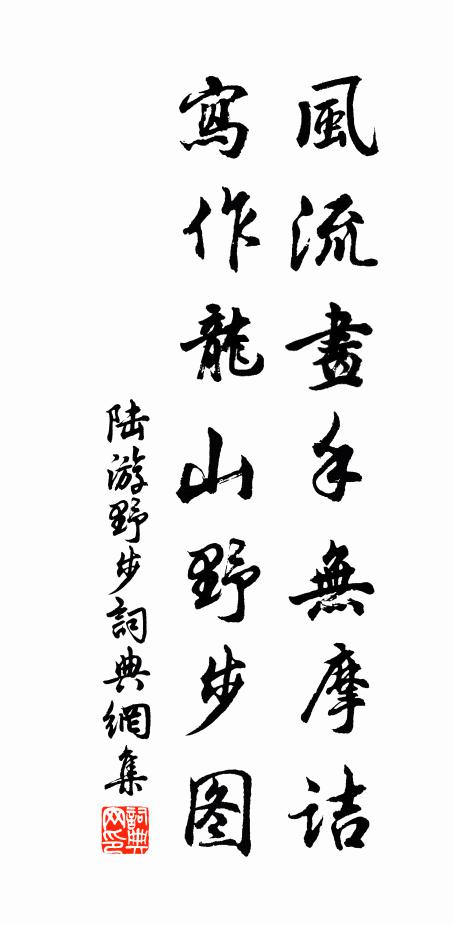 風流畫手無摩詰
寫作龍山野步图
陆游野步詞典網集
詞典网印